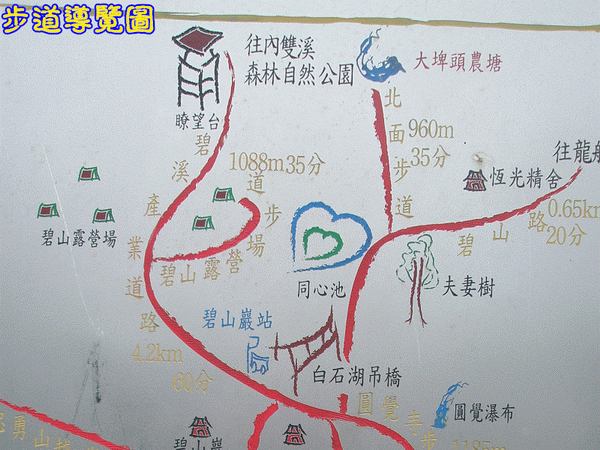 步道導覽圖
往內雙溪
森林自然公園
大埤頭農塘
瞭望台
北面步道
960m
35分
碧溪產業道路
4.2km
60分
1088m35分
碧山露營場步道
碧山露營場
恆光精舍
往龍船
碧山路
0.65km
20分
同心池
夫妻樹
碧山巖站
白石湖吊橋
圓覺寺步
圓覺瀑布
碧山巖
勇山